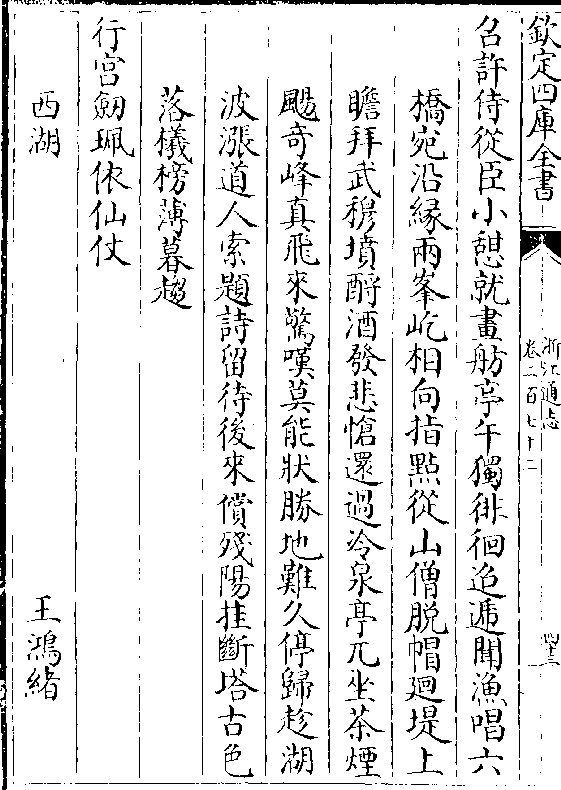 欽定四庫全書
浙江通志
卷二百七十二
四十三
召許侍從臣小憩就畫舫亭午獨徘徊迢遞聞漁唱六
橋宛沿緣兩峯屹相向指點從山僧脱帽廻堤上
瞻拜武穆墳酹酒發悲愴還過冷泉亭兀坐茶煙
颺奇峰真飛來驚嘆莫能狀勝地難久停歸趁湖
波漲道人索題詩留待後來償殘陽挂斷塔古色
落檥榜薄暮趨
行宫劒珮依仙仗
西湖
王鴻緒